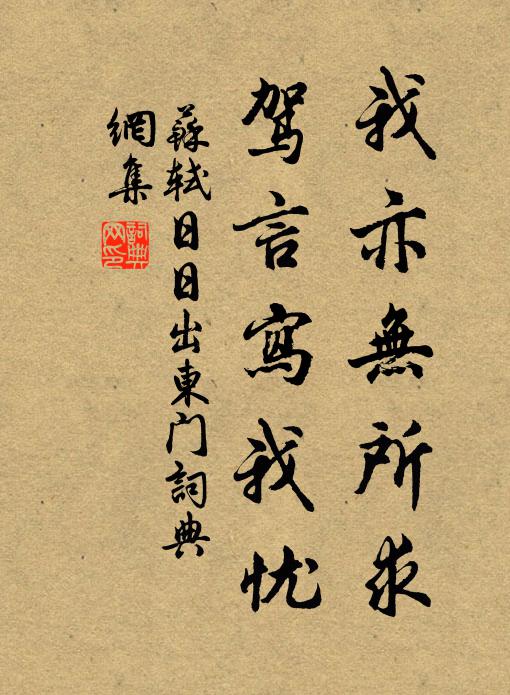 我亦無所求
駕言寫我忧
蘇軾日日出東门詞典
網集
詞典
网印